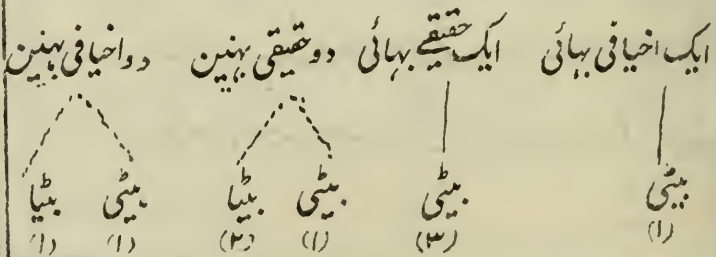 ایک اخیافی بہائی ایک حقیقے بہائی دو حقیقی بہنین دو اخیافی بہنین
بیٹی بیٹی بیٹی بیٹا بیٹی بیٹا
(۱) (۳) (۱) (۲) (۱) (۱)